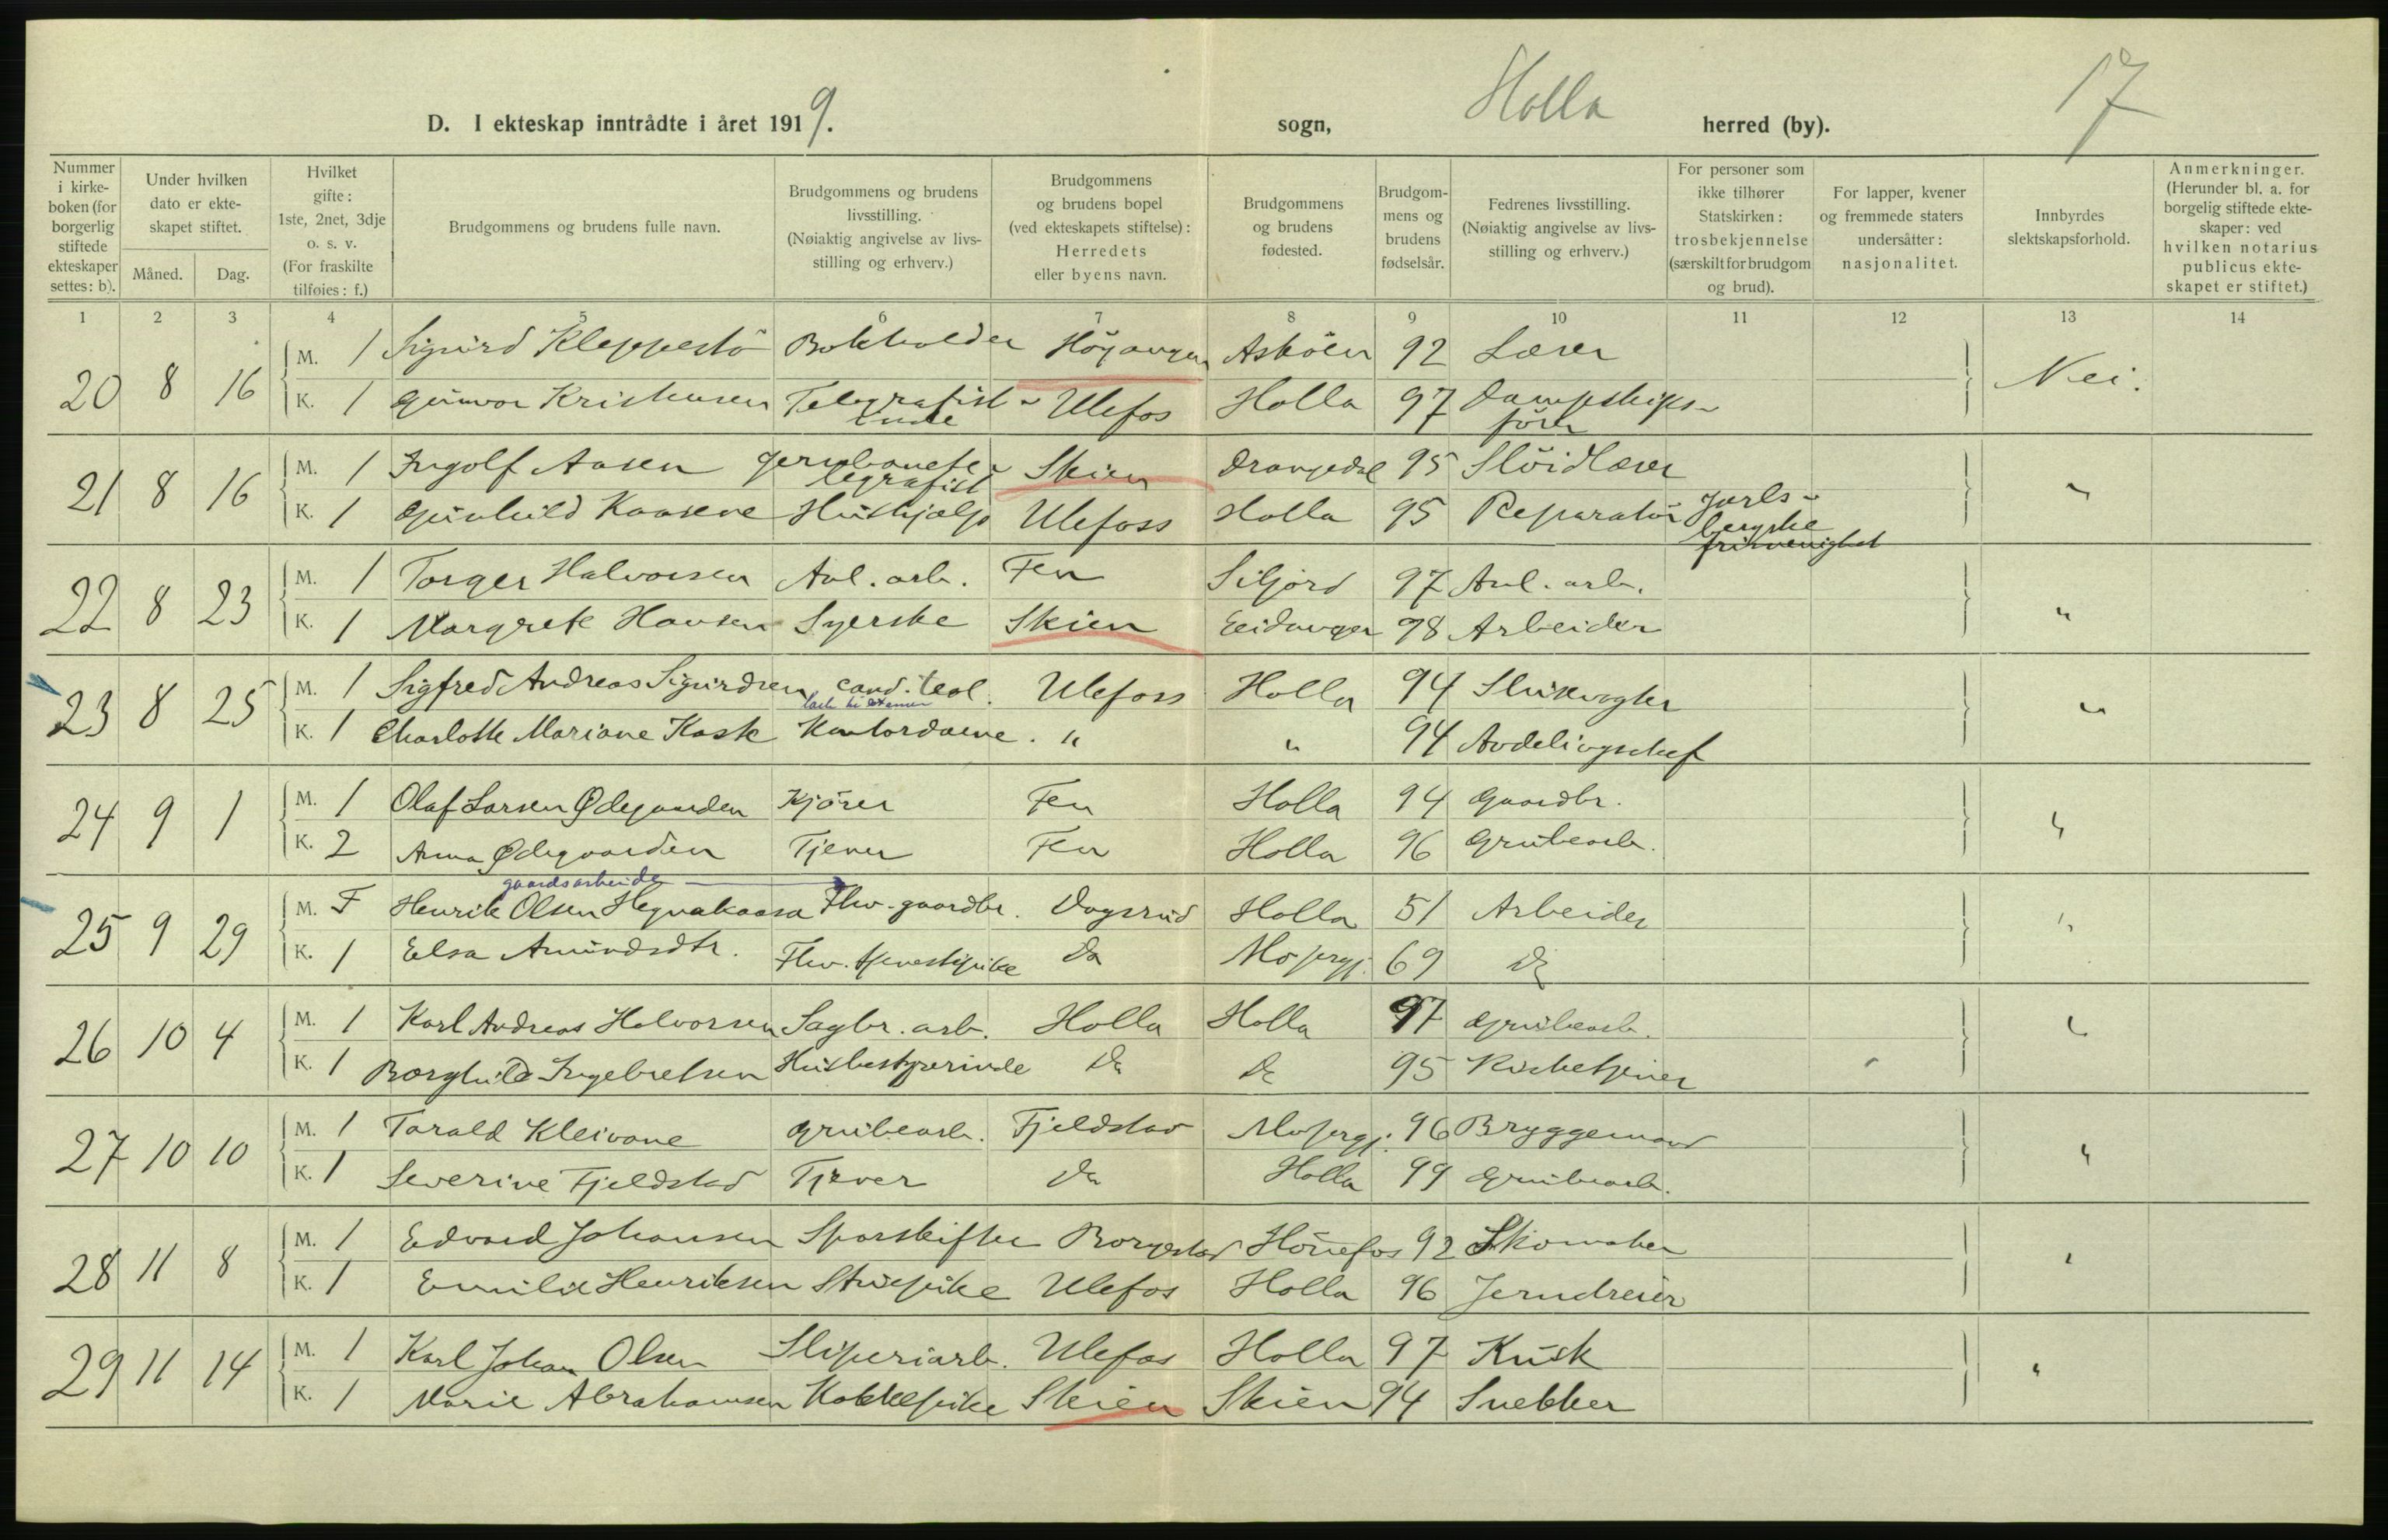 17
D. I ekteskap inntrådte i året 1919. sogn, Holla herred (by).
Nummer i kirkeboken (for borgerlig stiftede ekteskaper settes: b).
Under hvilken dato er ekteskapet stiftet.
Måned. Dag.
Hvilket gifte: 1ste, 2net, 3dje o. s. v. (For fraskilte tilføies: f.)
Brudgommens og brudens fulle navn.
Brudgommens og brudens livsstilling. (Nøiaktig angivelse av livsstilling og erhverv.)
Brudgommens og brudens bopel (ved ekteskapets stiftelse): Herredets eller byens navn.
Brudgommens og brudens fødested.
Brudgommens og brudens fødselsår.
Fedrenes livsstilling. (Nøiaktig angivelse av livsstilling og erhverv.)
For personer som ikke tilhører Statskirken: trosbekjennelse (særskilt for brudgom og brud).
For lapper, kvener og fremmede staters undersåtter: nasjonalitet.
Innbyrdes slektskapsforhold.
Anmerkninger. (Herunder bl. a. for borgelig stiftede ekteskaper: ved hvilken notarius publicus ekteskapet er stiftet.)
1 2 3 4 5 6 7 8 9 10 11 12 13 14
20 8 16 M. 1 Sigurd Kleppestö Bokholder Höyanger Asköen 92 Lærer Nei.
K. 1 Gunvor Kristensen Telegrafistinde Ulefos Holla 97 Dampskipsförer
21 8 16 M. 1 Ingolf Aasen Jernbanetelegrafist Skien Drangedal 95 Slöidlærer "
K. 1 Gunhild Kaasene Hushjælp Ulefoss Holla 95 Reparatör Jarlsbergske frimenighet
22 8 23 M. 1 Torger Halvorsen Anl. arb. Fen Siljord 97 Anl. arb. "
K. 1 Margrete Hansen Syerske Skien Eidanger 98 Arbeider
23 8 25 M. 1 Sigfred Andreas Sigurdsen cand. teol. Ulefoss Holla 94 "
K. 1 Charlotte Mariane Kaste Kontordame " " 94 Avdelingschef
24 9 1 M. 1 Olaf Larsen Ødegaarden Kjörer Fen Holla 94 Gaardbr. "
K. 2 Anna Ødegaarden Tjener Fen Holla 96 Grubearb.
gaardsarbeider
25 9 29 M. F Henrik Olsen Hegnakaasa Fhv. gaardbr. Dagsrud Holla 51 Arbeider "
K. 1 Elsa Amundsdtr. Fhv. tjenestepike Do Mo prgj. 69 Do
26 10 4 M. 1 Karl Andreas Halvorsen Sagbr. arb. Holla Holla 97 Grubearb. "
K. 1 Borghild Ingebretsen Husbestyrerinde Do Do 95 Kirketjener
27 10 10 M. 1 Tarald Kleivane Grubearb. Fjeldstad Mo prgj. 96 Bryggemand "
K. 1 Severine Fjeldstad Tjener Do Holla 99 Grubearb.
28 11 8 M. 1 Edvard Johansen Sporskifter Borgestad Hönefos 92 Skomaker "
K. 1 Emilie Henriksen Stuepike Ulefos Holla 96 Jerndreier
29 11 14 M. 1 Karl Johan Olsen Sliperiarb. Ulefos Holla 97 Kusk "
K. 1 Marie Abrahamsen Kokkepike Skien Skien 94 Snekker